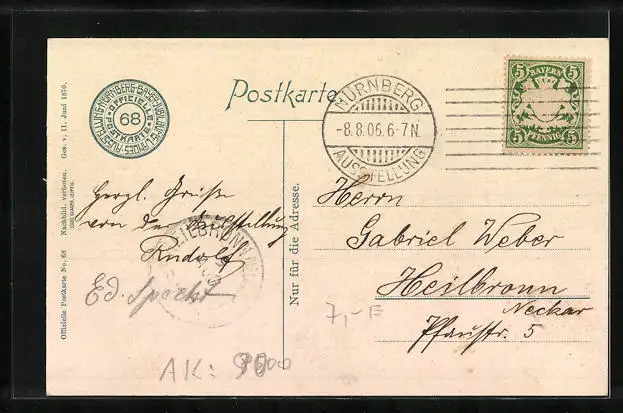 Offizielle Postkarte No. 68 Nachbild. verboten. Ges. v. 11. Juni 1870.
BAYER. JUBILÄUMS-LANDES-AUSSTELLUNG NÜRNBERG
OFFICIELLE
68
POSTKARTE
Postkarte
NÜRNBERG
-8.8.06.6-7N.
AUSSTELLUNG
5 BAYERN 5
5 PFENNIG 5
Herzl. Grüße
von der Ausstellung
Rudolf
Ed. Specht
HEILBRONN
Nur für die Adresse.
Herrn
Gabriel Weber
Heilbronn
Neckar
5
7,-E
AK: